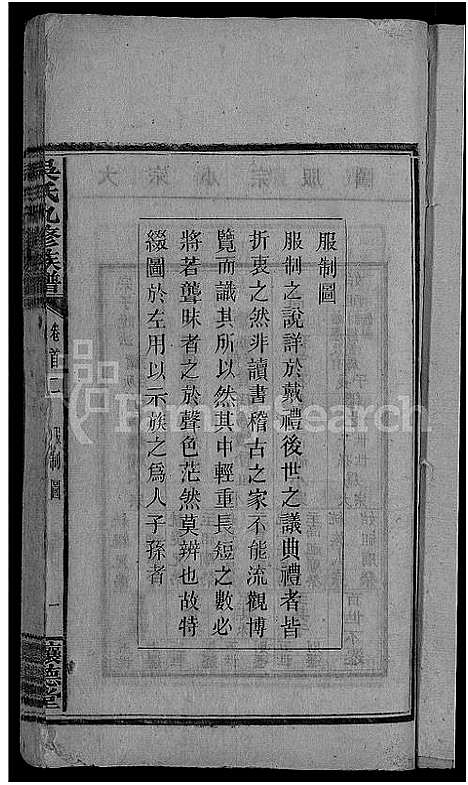 服制圖
服制之說詳於戴禮後世之議典禮者皆
折衷之然非讀書稽古之家不能流觀博
覽而識其所以然其中輕重長短之數必
將若聾昧者之於聲色茫然莫辨也故特
綴圖於左用以示族之為人子孫者
吳氏九修族譜
卷首二
服制圖
一
讓德堂
FamilySearch